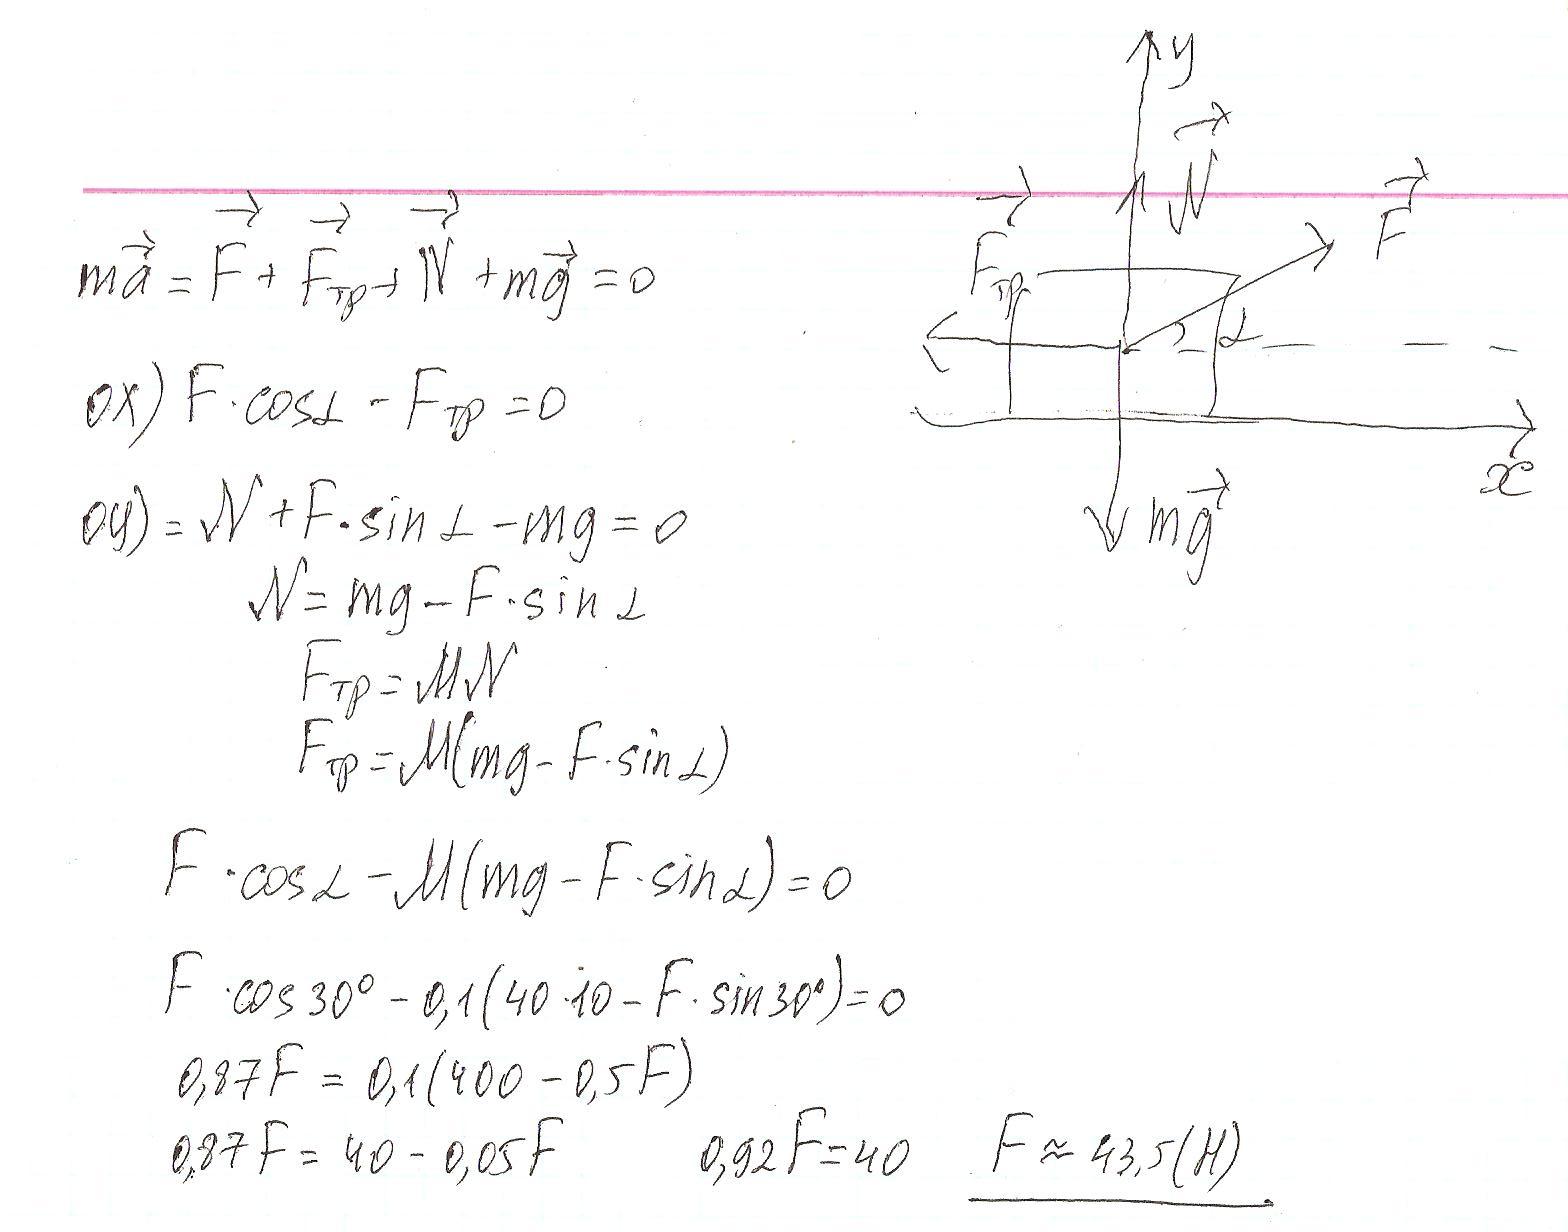 y
N
F
Fтр
α
x
mg
ma = F + Fтр + N + mg = 0
ox) F·cosα - Fтр = 0
oy) = N + F·sinα - mg = 0
N = mg - F·sinα
Fтр = MN
Fтр = M(mg - F·sinα)
F·cosα - M(mg - F·sinα) = 0
F·cos30° - 0,1(40·10 - F·sin30°) = 0
0,87F = 0,1(400 - 0,5F)
0,87F = 40 - 0,05F   0,92F = 40   F ≈ 43,5(Н)